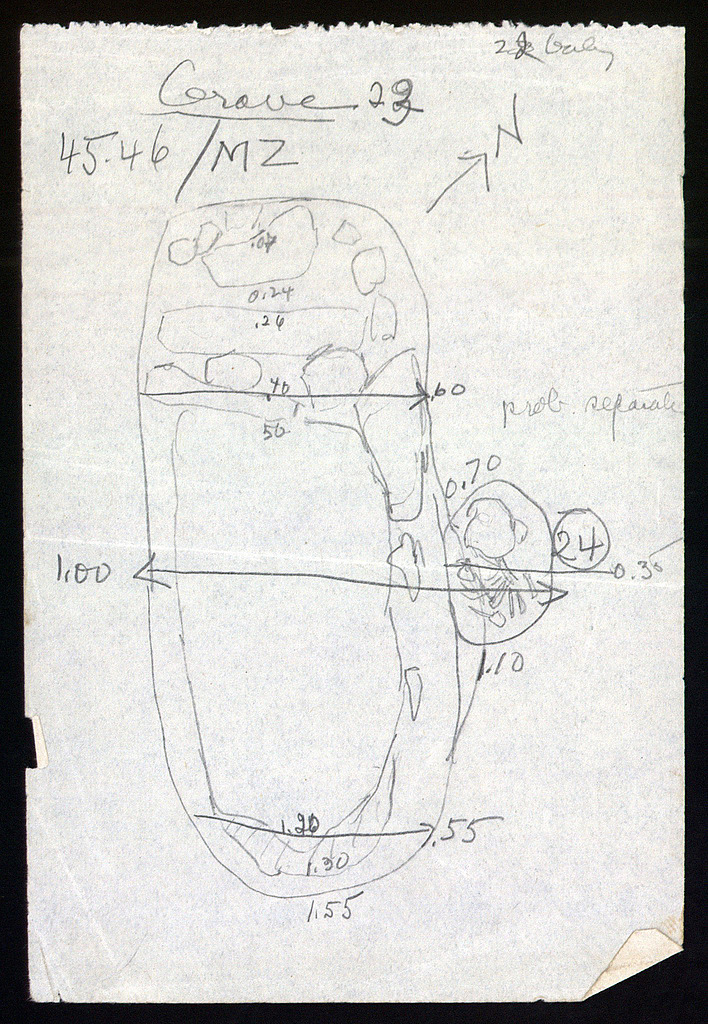 baby
Grave 23
45.46/MZ
N
.07
0.24
.26
.40
.60
50
prob. separate
0.70
24
1.00
0.35
1.10
1.20
.55
1.30
1.55